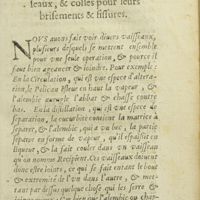 leaux, & colles pour leurs
brisements & fissures.
NOVS auons fait voir diuers vaisseaux,
plusieurs desquels se mettent ensemble
pour vne seule operation, & pource il
faut bien agencer & ioindre. Pour exemple:
En la Circulation, qui est vne espece d'altera-
tion, le Pelican esleue en haut la vapeur, &
l'alembic aueugle l'abbat & chasse contre
bas. En la distillation, qui est vne espece de
separation, la cucurbite contient la matiere à
separer, & l'alembic, qui a vn bec, la partie
separee en forme de vapeur, qu'il espaissit en
liqueur, & la fait couler dans vn vaisseau
qui a nom Recipient. Ces vaisseaux doiuent
donc estre ioints, ce qui se fait entant le bout
& extremité de l'vn dans l'autre, & met-
tant par dessus quelque chose qui les serre &
bien que l'alembic ou chap-